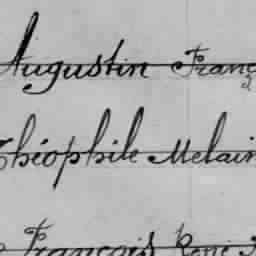 Augustin Franç
Théophile Melain
François René